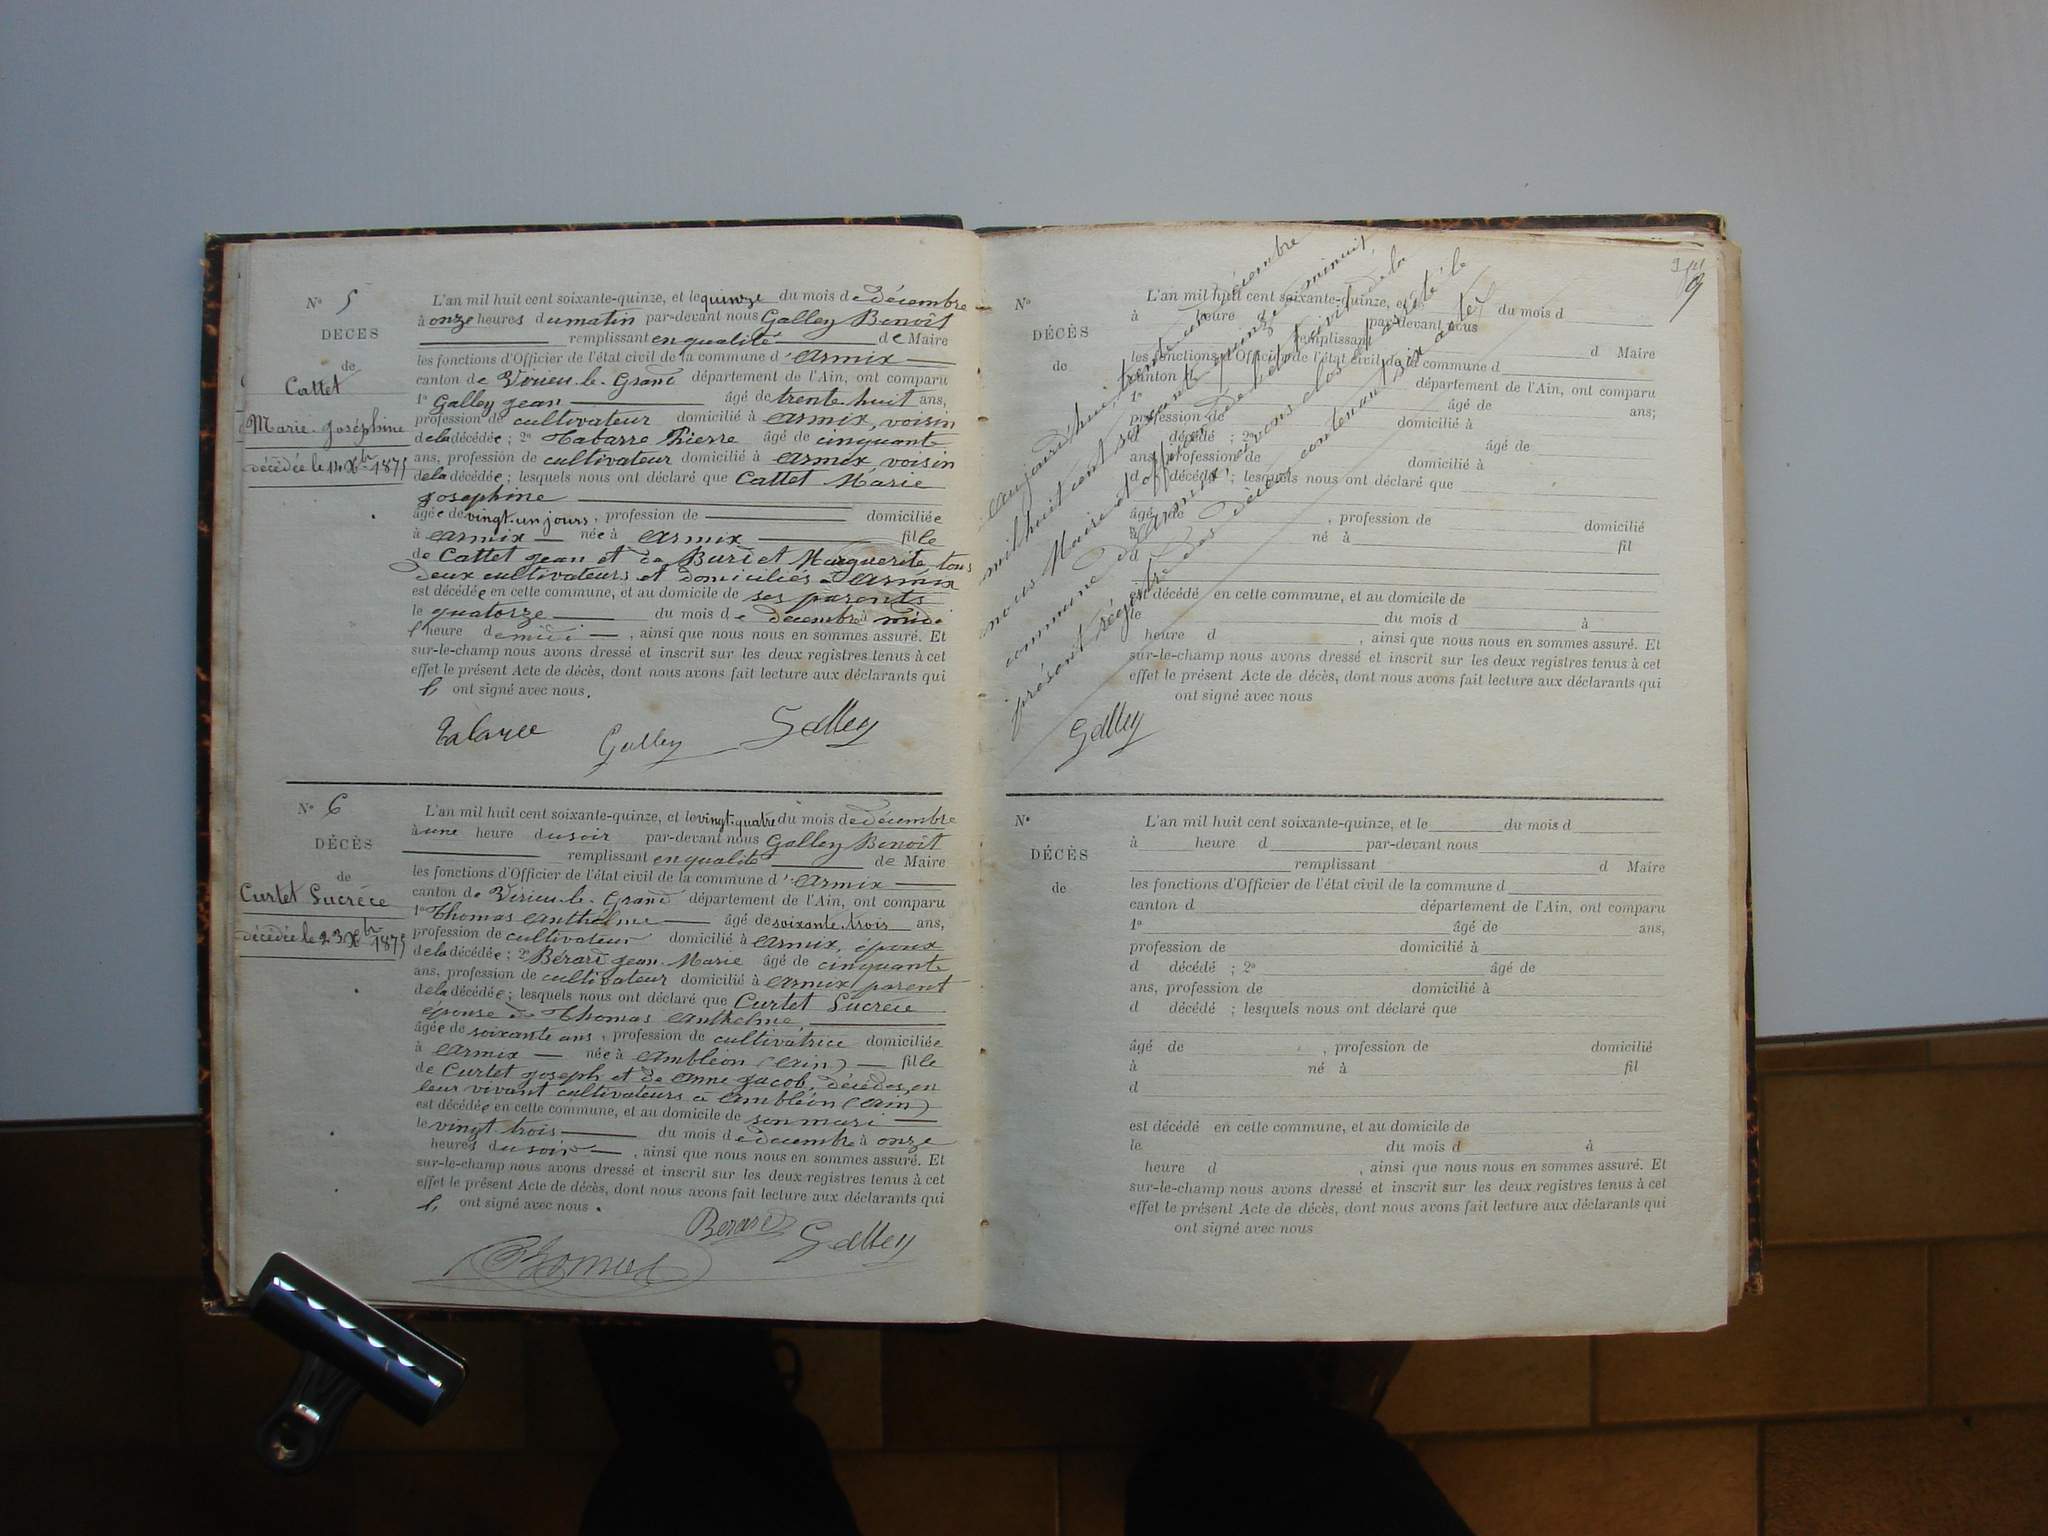 N° 5
DÉCÈS
de
Cattet
Marie-Joséphine
décédée le 14 Xbre 1875
L'an mil huit cent soixante-quinze, et le quinze du mois de décembre
à onze heures du matin par-devant nous Galley Benoît
remplissant en qualité de Maire
les fonctions d'Officier de l'état civil de la commune d'Armix
canton de Virieu-le-Grand département de l'Ain, ont comparu
1° Galley Jean âgé de trente huit ans,
profession de cultivateur domicilié à Armix, voisin
de la décédée ; 2° Tabarre Pierre âgé de cinquante
ans, profession de cultivateur domicilié à Armix voisin
de la décédée ; lesquels nous ont déclaré que Cattet Marie
Josephine
âgée de vingt-un jours, profession de domiciliée
à Armix née à Armix fille
de Cattet Jean et de Buret Marguerite tous
deux cultivateurs et domiciliés à Armix
est décédée en cette commune, et au domicile de ses parents
le quatorze du mois de décembre à midi
heure de midi, ainsi que nous nous en sommes assuré. Et
sur-le-champ nous avons dressé et inscrit sur les deux registres tenus à cet
effet le présent Acte de décès, dont nous avons fait lecture aux déclarants qui
ont signé avec nous.
Galley Galley
N° 6
DÉCÈS
de
Curtet Lucrèce
décédée le 23 Xbre 1875
L'an mil huit cent soixante-quinze, et le vingt-quatre du mois de décembre
à une heure du soir par-devant nous Galley Benoît
remplissant en qualité de Maire
les fonctions d'Officier de l'état civil de la commune d'Armix
canton de Virieu-le-Grand département de l'Ain, ont comparu
1° Thomas Anthelme âgé de soixante-trois ans,
profession de cultivateur domicilié à Armix, époux
de la décédée ; 2° Bérard Jean-Marie âgé de cinquante
ans, profession de cultivateur domicilié à Armix parent
de la décédée ; lesquels nous ont déclaré que Curtet Lucrèce
épouse de Thomas Anthelme,
âgée de soixante ans, profession de cultivatrice domiciliée
à Armix née à Ambléon (Ain) fille
de Curtet Joseph et de Anne Jacob, décédés, en
leur vivant cultivateurs à Ambléon (Ain)
est décédée en cette commune, et au domicile de son mari
le vingt trois du mois de décembre à onze
heures du soir, ainsi que nous nous en sommes assuré. Et
sur-le-champ nous avons dressé et inscrit sur les deux registres tenus à cet
effet le présent Acte de décès, dont nous avons fait lecture aux déclarants qui
ont signé avec nous.
Berard Galley
Thomas
9
N°
DÉCÈS
de
L'an mil huit cent soixante-quinze, et le du mois d
à heure par-devant nous
remplissant d Maire
les fonctions d'Officier de l'état civil de la commune d
canton d département de l'Ain, ont comparu
1° âgé de ans;
profession de domicilié à
d décédé ; 2° âgé de
ans, profession de domicilié à
d décédé ; lesquels nous ont déclaré que
âgé de , profession de domicilié
à né à fil
d
est décédé en cette commune, et au domicile de
le du mois d à
heure d , ainsi que nous nous en sommes assuré. Et
sur-le-champ nous avons dressé et inscrit sur les deux registres tenus à cet
effet le présent Acte de décès, dont nous avons fait lecture aux déclarants qui
ont signé avec nous
Aujourd'hui, trente un décembre
mil huit cent soixante quinze à minuit,
nous Maire et officier de l'état civil de la
commune d'Armix, avons clos et arrêté le
présent régistre des décès contenant six actes
Galley
N°
DÉCÈS
de
L'an mil huit cent soixante-quinze, et le du mois d
à heure d par-devant nous
remplissant d Maire
les fonctions d'Officier de l'état civil de la commune d
canton d département de l'Ain, ont comparu
1° âgé de ans,
profession de domicilié à
d décédé ; 2° âgé de
ans, profession de domicilié à
d décédé ; lesquels nous ont déclaré que
âgé de , profession de domicilié
à né à fil
d
est décédé en cette commune, et au domicile de
le du mois d à
heure d , ainsi que nous nous en sommes assuré. Et
sur-le-champ nous avons dressé et inscrit sur les deux registres tenus à cet
effet le présent Acte de décès, dont nous avons fait lecture aux déclarants qui
ont signé avec nous